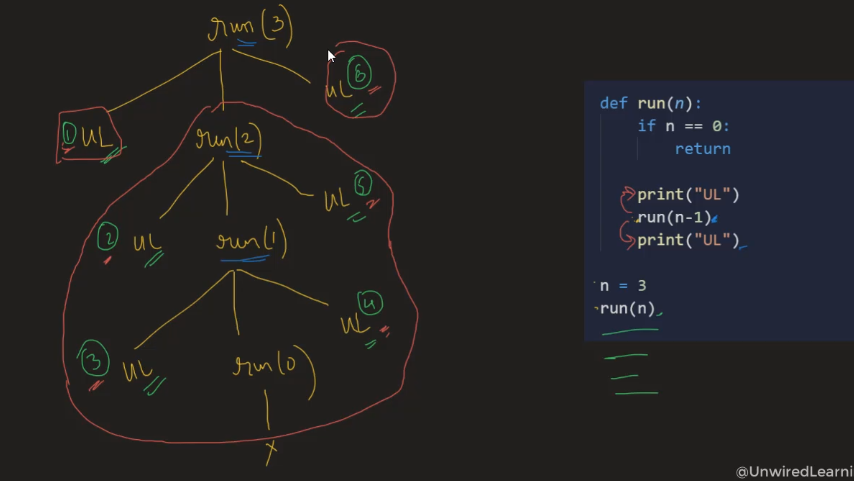 run(3)
6
UL
1 UL
run(2)
5
UL
2 UL
run(1)
4
UL
3 UL
run(0)
x
def run(n):
if n == 0:
return
print("UL")
run(n-1)
print("UL")
n = 3
run(n)
@UnwiredLearni